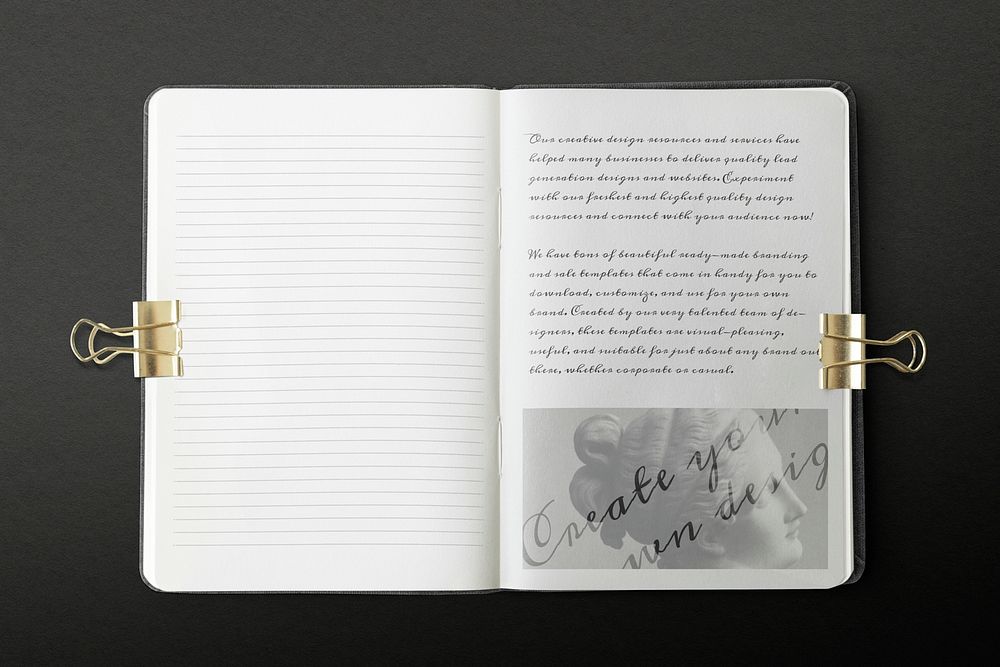 Our creative design resources and services have
helped many businesses to deliver quality lead
generation designs and websites. Experiment
with our freshest and highest quality design
resources and connect with your audience now!
We have tons of beautiful ready-made branding
and sale templates that come in handy for you to
download, customize, and use for your own
brand. Created by our very talented team of de-
signers, these templates are visual-pleasing,
useful, and suitable for just about any brand out
there, whether corporate or casual.
Create your
own desig